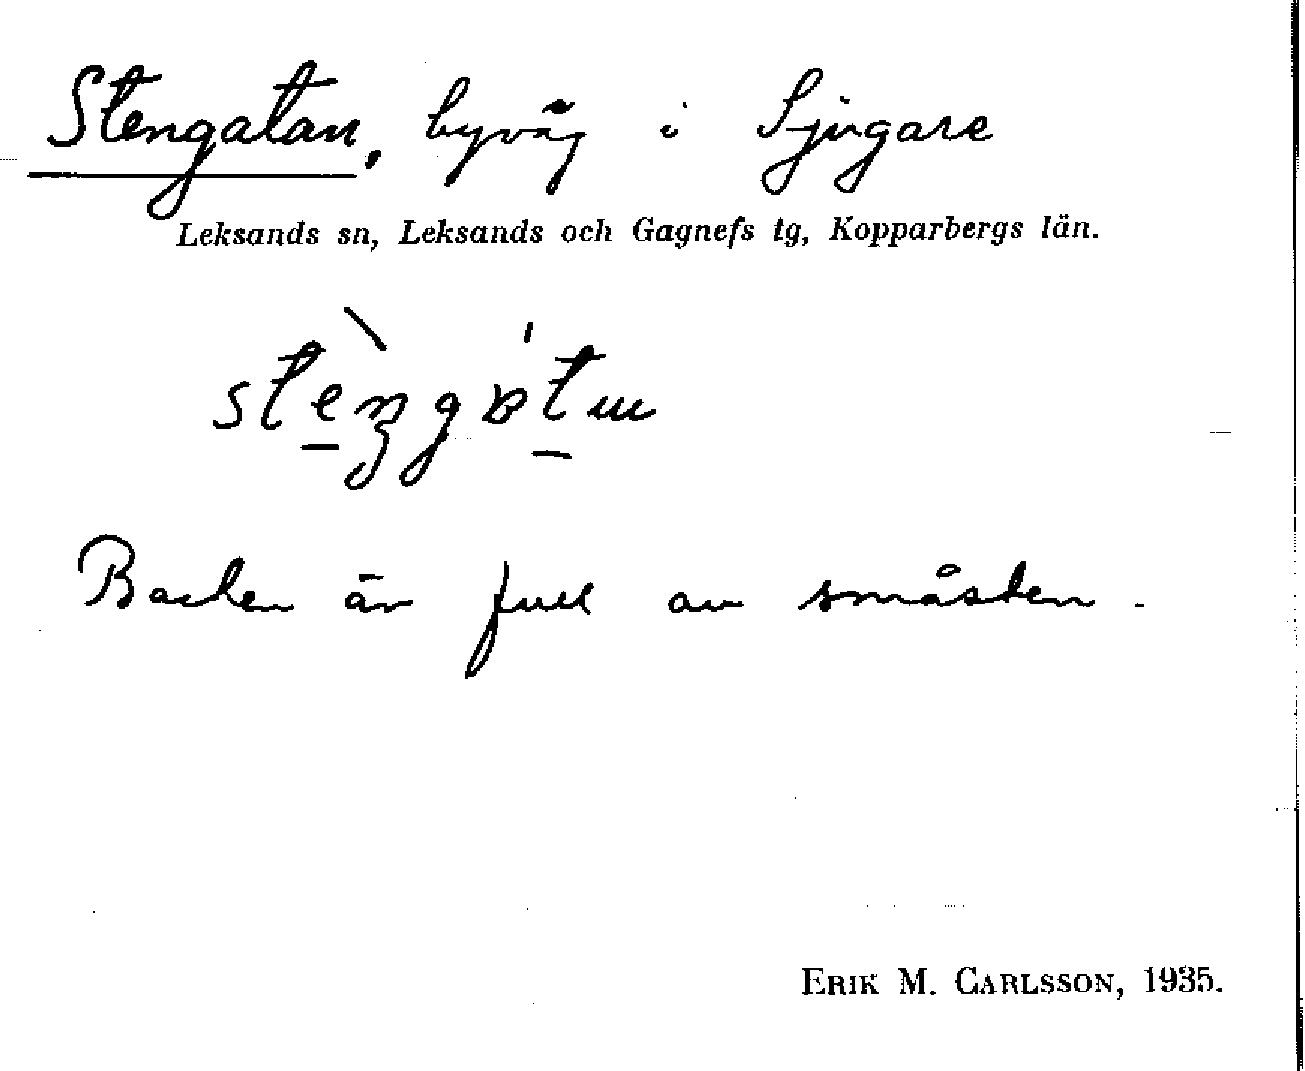 Stengatan, byväg i Sjugare
Leksands sn, Leksands och Gagnefs tg, Kopparbergs län.
Backen är full av småsten.
ERIK M. CARLSSON, 1935.